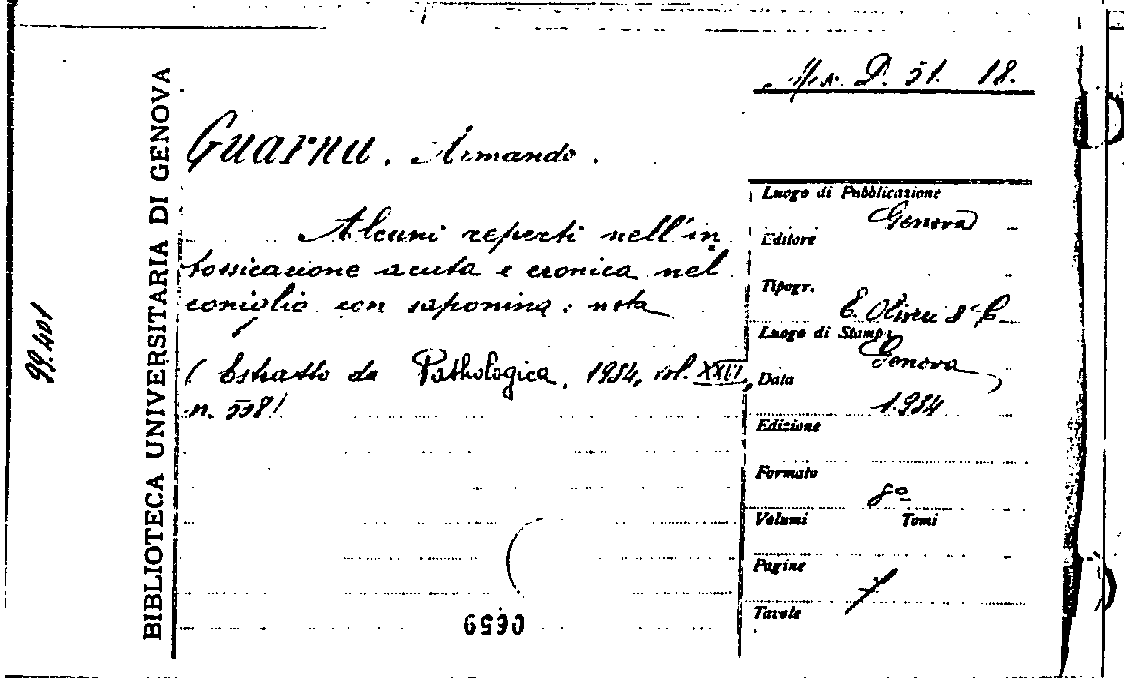 BIBLIOTECA UNIVERSITARIA DI GENOVA
99.401
D. 51. 18.
Armando.
Alcuni reperti nell'in
tossicazione acuta e cronica nel
coniglio con saponina: nota
(Estratto da Pathologica, 1934, vol. XXVI,
n. 558)
0659
Luogo di Pubblicazione
Genova
Editore
Tipogr.
E. Olivieri & C.
Luogo di Stampa
Genova
Data
1934
Edizione
Formato
8º
Volumi Tomi
Pagine
Tavole